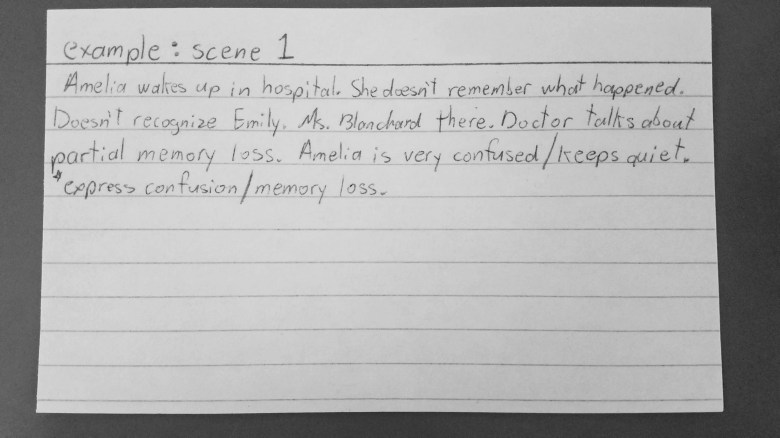 example: scene 1
Amelia wakes up in hospital. She doesn't remember what happened.
Doesn't recognize Emily. Ms. Blanchard there. Doctor talks about
partial memory loss. Amelia is very confused/keeps quiet.
*express confusion/memory loss.